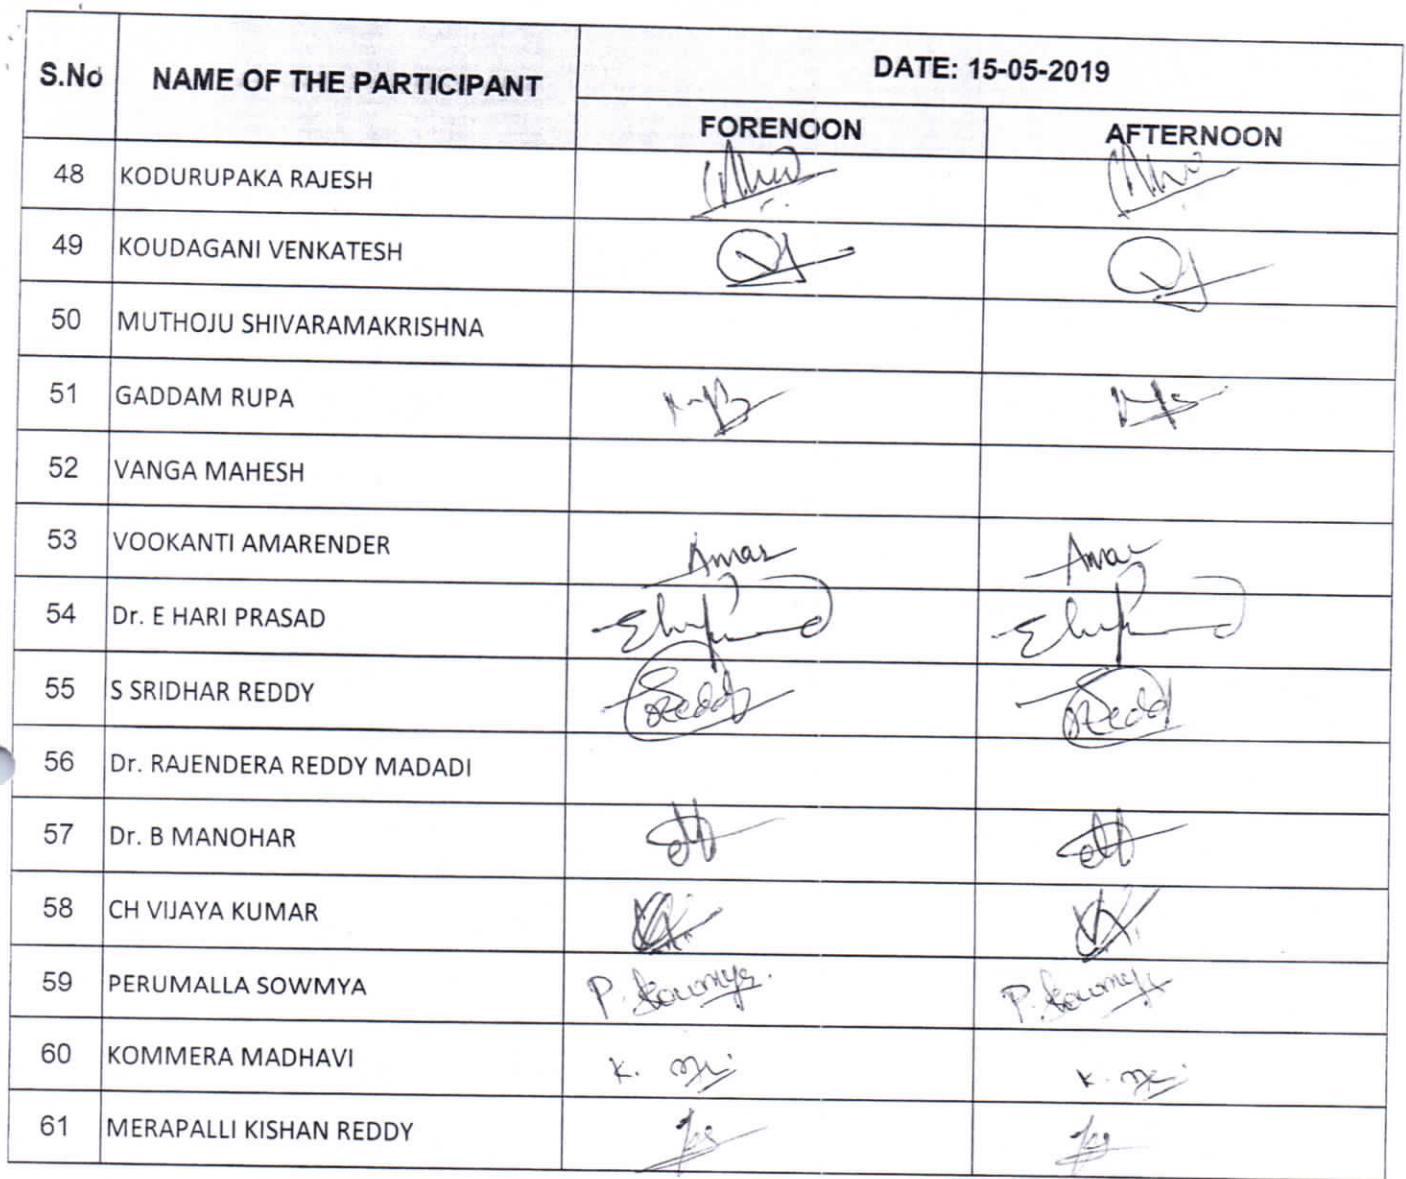 S.No NAME OF THE PARTICIPANT DATE: 15-05-2019
FORENOON AFTERNOON
48 KODURUPAKA RAJESH
49 KOUDAGANI VENKATESH
50 MUTHOJU SHIVARAMAKRISHNA
51 GADDAM RUPA
52 VANGA MAHESH
53 VOOKANTI AMARENDER Amar Amar
54 Dr. E HARI PRASAD
55 S SRIDHAR REDDY
56 Dr. RAJENDERA REDDY MADADI
57 Dr. B MANOHAR
58 CH VIJAYA KUMAR
59 PERUMALLA SOWMYA P. Sowmya P. Sowmya
60 KOMMERA MADHAVI K. K.
61 MERAPALLI KISHAN REDDY